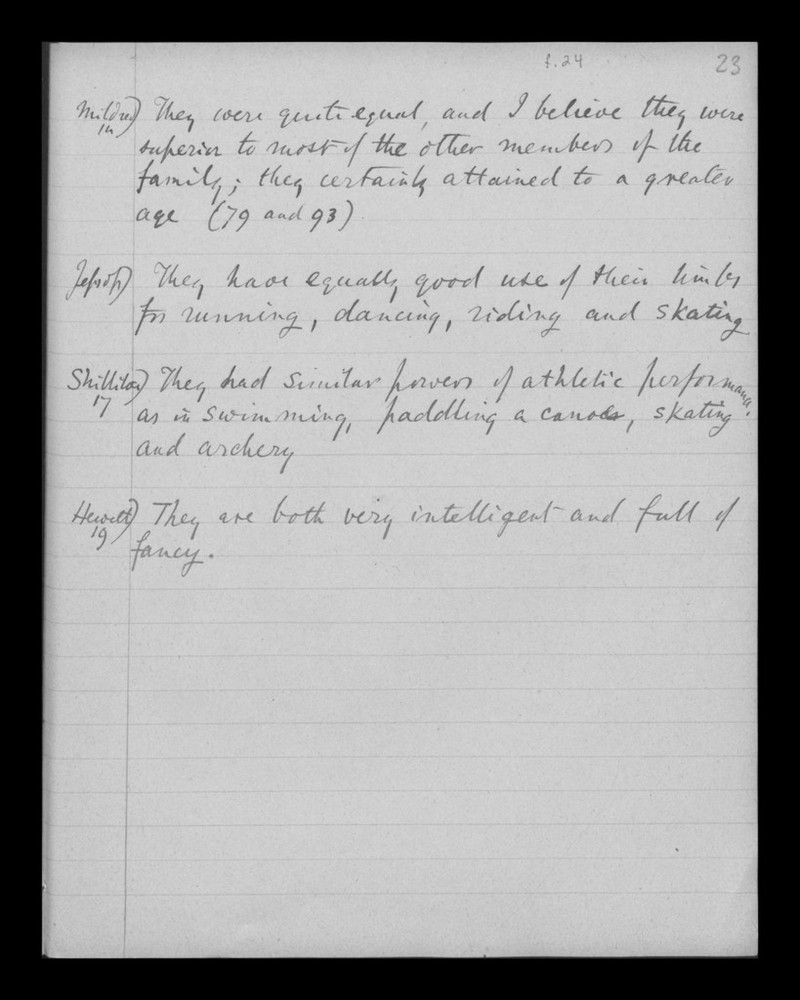 f. 24 23
Mildred) They were quite equal, and I believe they were
superior to most of the other members of the
family; they certainly attained to a greater
age (79 and 93)
Jessop) They have equally good use of their limbs
for running, dancing, riding and skating
Shillito) They had similar powers of athletic performance.
17 as in swimming, paddling a canoe, skating
and archery
Hewett) They are both very intelligent and full of
19 fancy.